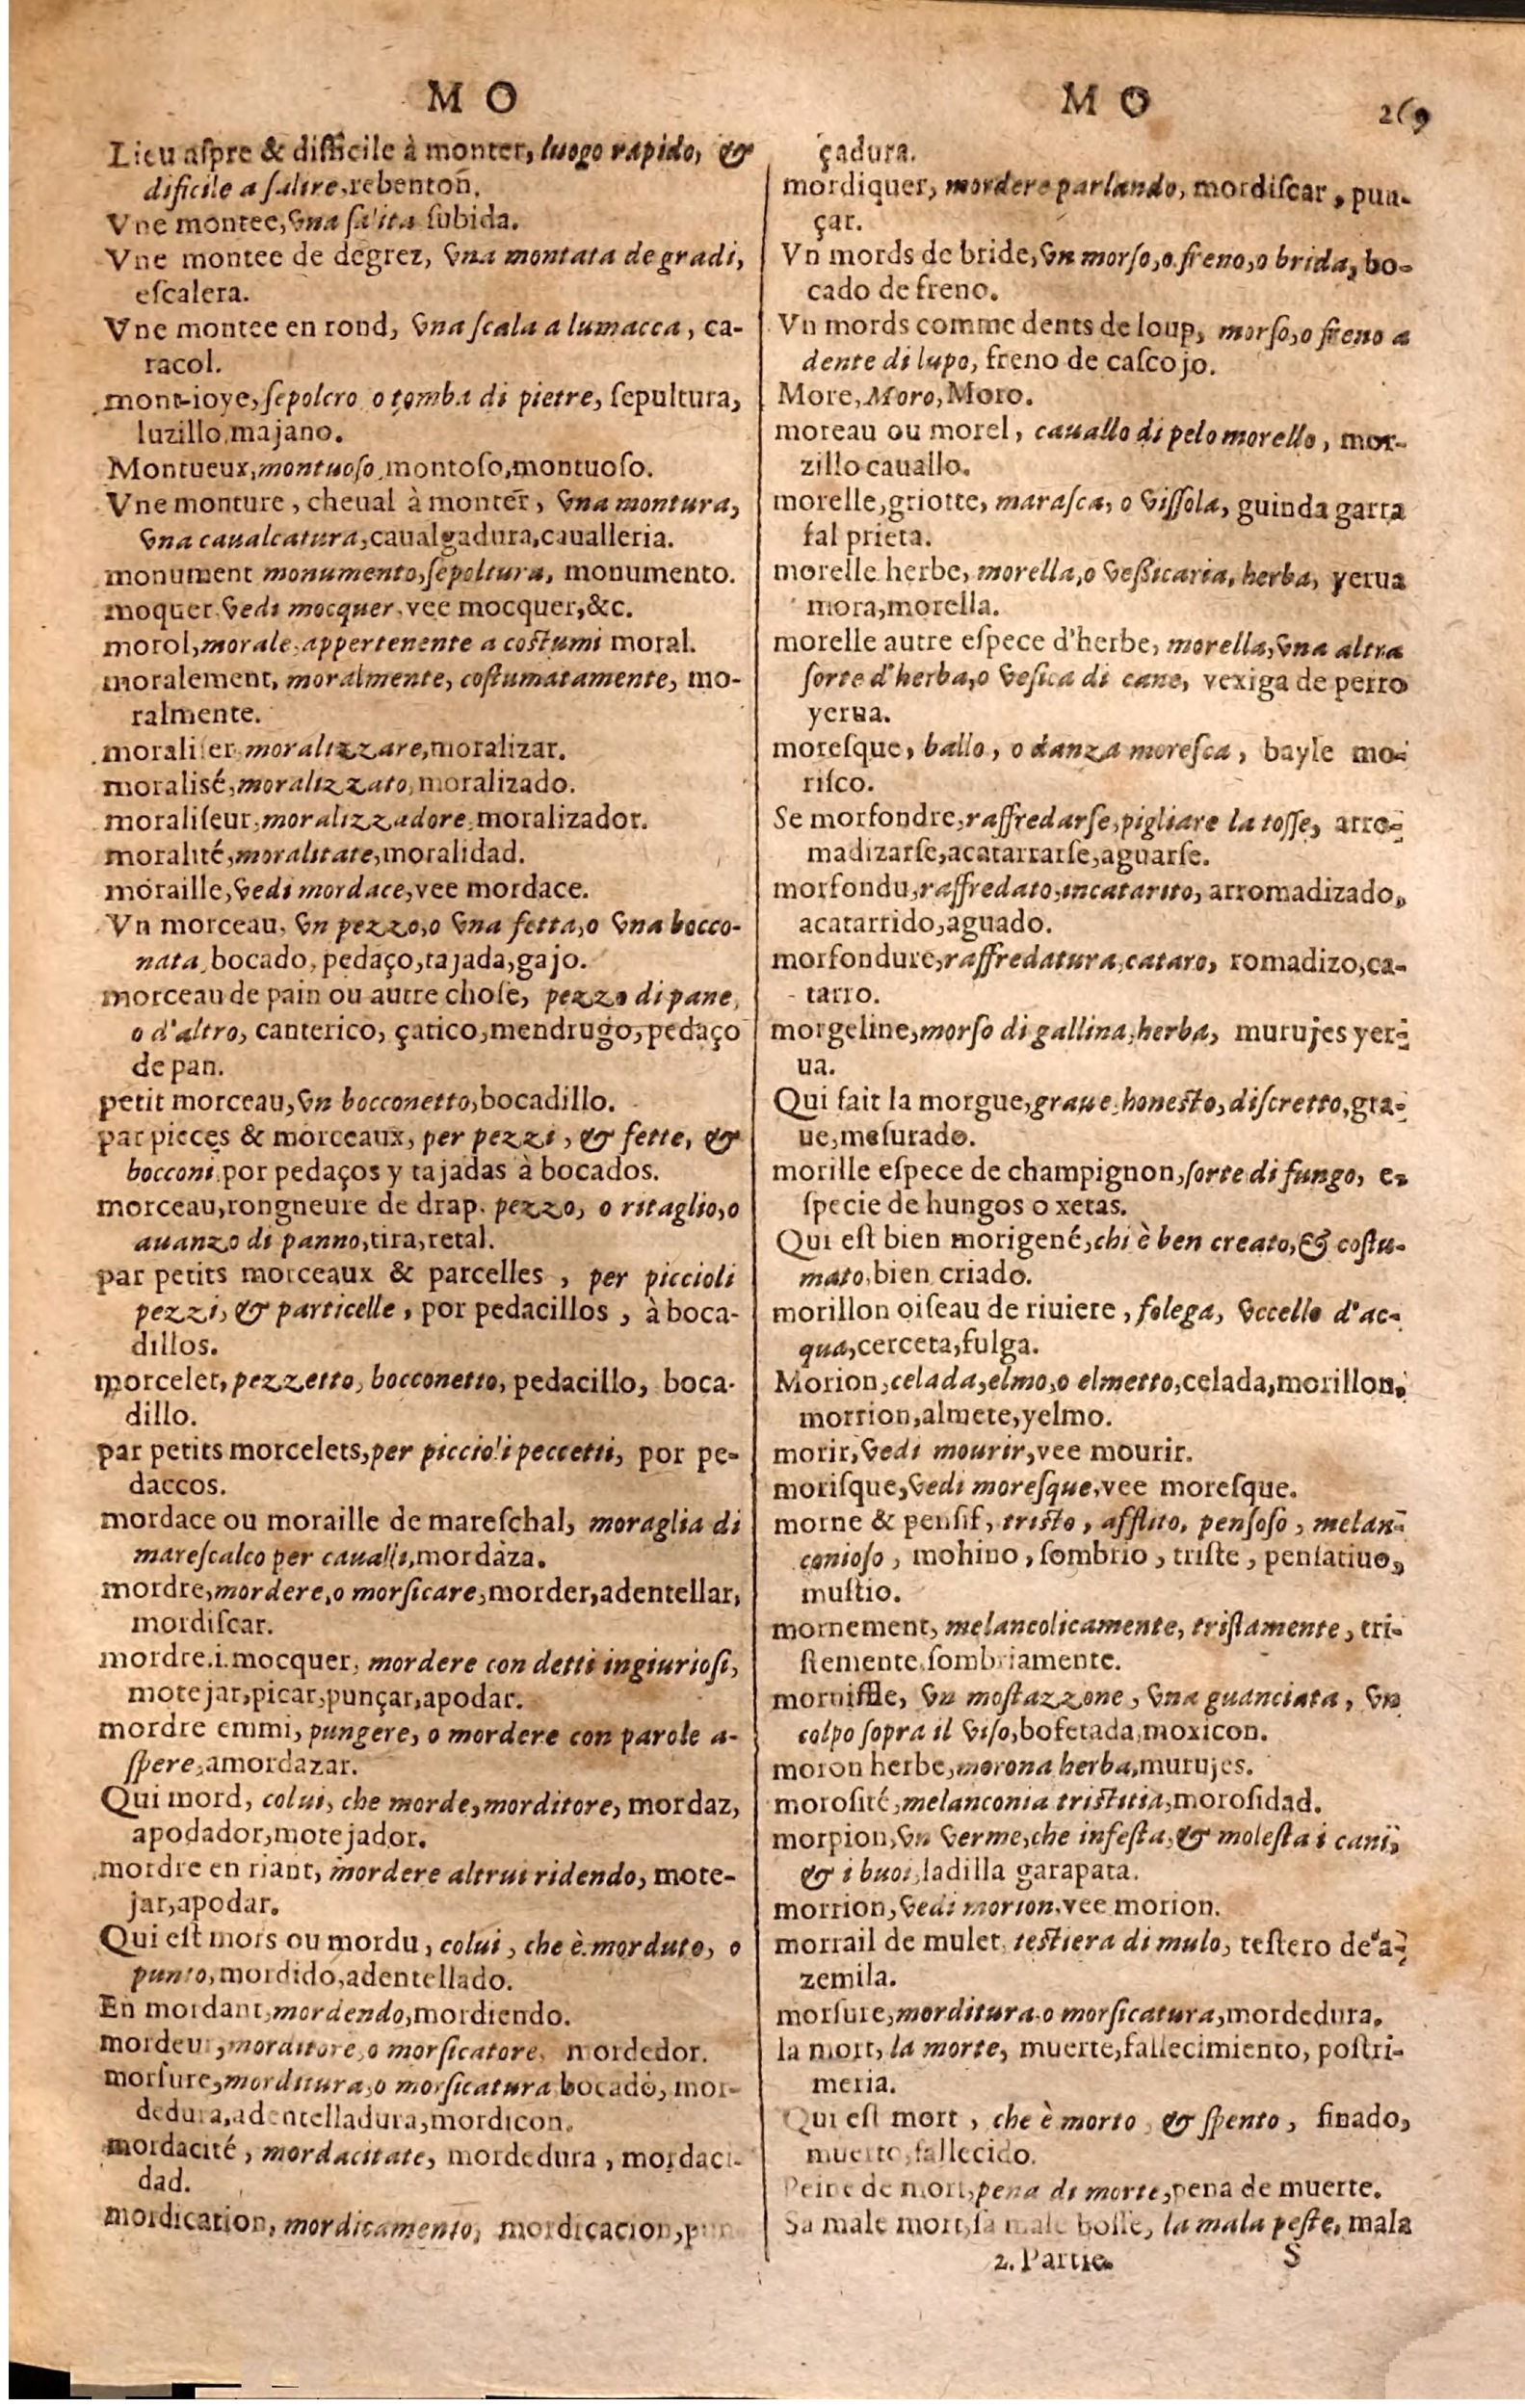 M O
Lieu aſpre & difficile à monter, luogo rapido, &
dificile a ſalire, rebentoñ.
Vne montee, vna ſalita ſubida.
Vne montee de degrez, vna montata de gradi,
eſcalera.
Vne montee en rond, vna ſcala a lumacca, ca-
racol.
mont-ioye, ſepolcro o tomba di pietre, ſepultura,
luzillo, majano.
Montueux, montuoſo, montoſo, montuoſo.
Vne monture, cheual à monter, vna montura,
vna caualcatura, caualgadura, caualleria.
monument monumento, ſepoltura, monumento.
moquer vedi mocquer, vee mocquer, &c.
morol, morale, appertenente a coſtumi moral.
moralement, moralmente, coſtumatamente, mo-
ralmente.
moraliſer moralizzare, moralizar.
moralisé, moralizzato, moralizado.
moraliſeur, moralizzadore, moralizador.
moralité, moralitate, moralidad.
moraille, vedi mordace, vee mordace.
Vn morceau, vn pezzo, o vna fetta, o vna bocco-
nata, bocado, pedaço, tajada, gajo.
morceau de pain ou autre choſe, pezzo di pane,
o d'altro, canterico, çatico, mendrugo, pedaço
de pan.
petit morceau, vn bocconetto, bocadillo.
par pieces & morceaux, per pezzi, & fette, &
bocconi, por pedaços y tajadas à bocados.
morceau, rongneure de drap. pezzo, o ritaglio, o
auanzo di panno, tira, retal.
par petits morceaux & parcelles, per piccioli
pezzi, & particelle, por pedacillos, à boca-
dillos.
morcelet, pezzetto, bocconetto, pedacillo, boca-
dillo.
par petits morcelets, per piccioli peccetti, por pe-
daccos.
mordace ou moraille de mareſchal, moraglia di
mareſcalco per caualli, mordàza.
mordre, mordere, o morſicare, morder, adentellar,
mordiſcar.
mordre.i.mocquer, mordere con detti ingiurioſi,
motejar, picar, punçar, apodar.
mordre emmi, pungere, o mordere con parole a-
ſpere, amordazar.
Qui mord, colui, che morde, morditore, mordaz,
apodador, motejador.
mordre en riant, mordere altrui ridendo, mote-
jar, apodar.
Qui eſt mors ou mordu, colui, che è morduto, o
punto, mordido, adentellado.
En mordant, mordendo, mordiendo.
mordeur, morditore, o morſicatore, mordedor.
morſure, morditura, o morſicatura bocado, mor-
dedura, adentelladura, mordicon.
mordacité, mordacitate, mordedura, mordaci-
dad.
mordication, mordicamento, mordicacion, pun
M O 269
çadura.
mordiquer, mordere parlando, mordiſcar, pun-
çar.
Vn mords de bride, vn morſo, o freno, o brida, bo-
cado de freno.
Vn mords comme dents de loup, morſo, o freno a
dente di lupo, freno de caſcojo.
More, Moro, Moro.
moreau ou morel, cauallo di pelo morello, mor-
zillo cauallo.
morelle, griotte, maraſca, o viſſola, guinda garra
fal prieta.
morelle herbe, morella, o veſsicaria, herba, yerua
mora, morella.
morelle autre eſpece d'herbe, morella, vna altra
ſorte d'herba, o veſica di cane, vexiga de perro
yerua.
moreſque, ballo, o danza moreſca, bayle mo-
riſco.
Se morfondre, raffredarſe, pigliare la toſſe, arro-
madizarſe, acatarrarſe, aguarſe.
morfondu, raffredato, incatarito, arromadizado,
acatarrido, aguado.
morfondure, raffredatura, cataro, romadizo, ca-
tarro.
morgeline, morſo di gallina, herba, murujes yer-
ua.
Qui fait la morgue, graue, honeſto, diſcretto, gra-
ue, meſurado.
morille eſpece de champignon, ſorte di fungo, e-
ſpecie de hungos o xetas.
Qui eſt bien morigené, chi è ben creato, & coſtu-
mato, bien criado.
morillon oiſeau de riuiere, folega, vccello d'ac-
qua, cerceta, fulga.
Morion, celada, elmo, o elmetto, celada, morillon,
morrion, almete, yelmo.
morir, vedi mourir, vee mourir.
moriſque, vedi moreſque, vee moreſque.
morne & penſif, triſto, afflito, penſoſo, melan-
conioſo, mohino, ſombrio, triſte, penſatiuo,
muſtio.
mornement, melancolicamente, triſtamente, tri-
ſtemente, ſombriamente.
morniffle, vn moſtazzone, vna guanciata, vn
colpo ſopra il viſo, bofetada, moxicon.
moron herbe, morona herba, murujes.
moroſité, melanconia triſtitia, moroſidad.
morpion, vn verme, che infeſta, & moleſta i cani,
& i buoi, ladilla garapata.
morrion, vedi morion, vee morion.
morrail de mulet, teſtiera di mulo, teſtero de a-
zemila.
morſure, morditura o morſicatura, mordedura.
la mort, la morte, muerte, fallecimiento, poſtri-
meria.
Qui eſt mort, che è morto, & ſpento, finado,
muerto, fallecido.
Peine de mort, pena di morte, pena de muerte.
Sa male mort, ſa male boſſe, la mala peſte, mala
2. Partie. S